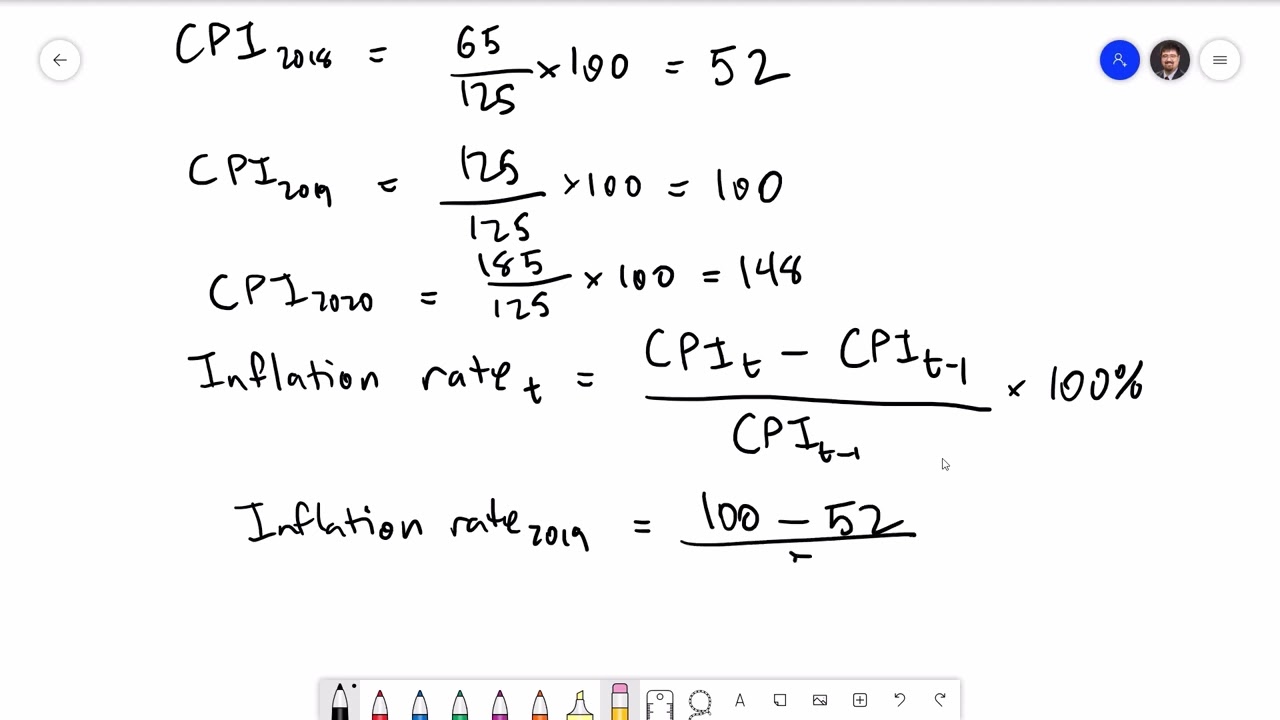 CPI₂₀₁₈ = 65/125 × 100 = 52
CPI₂₀₁₉ = 125/125 × 100 = 100
CPI₂₀₂₀ = 185/125 × 100 = 148
Inflation rateₜ = CPIₜ − CPIₜ₋₁ / CPIₜ₋₁ × 100%
Inflation rate₂₀₁₉ = 100 − 52
A